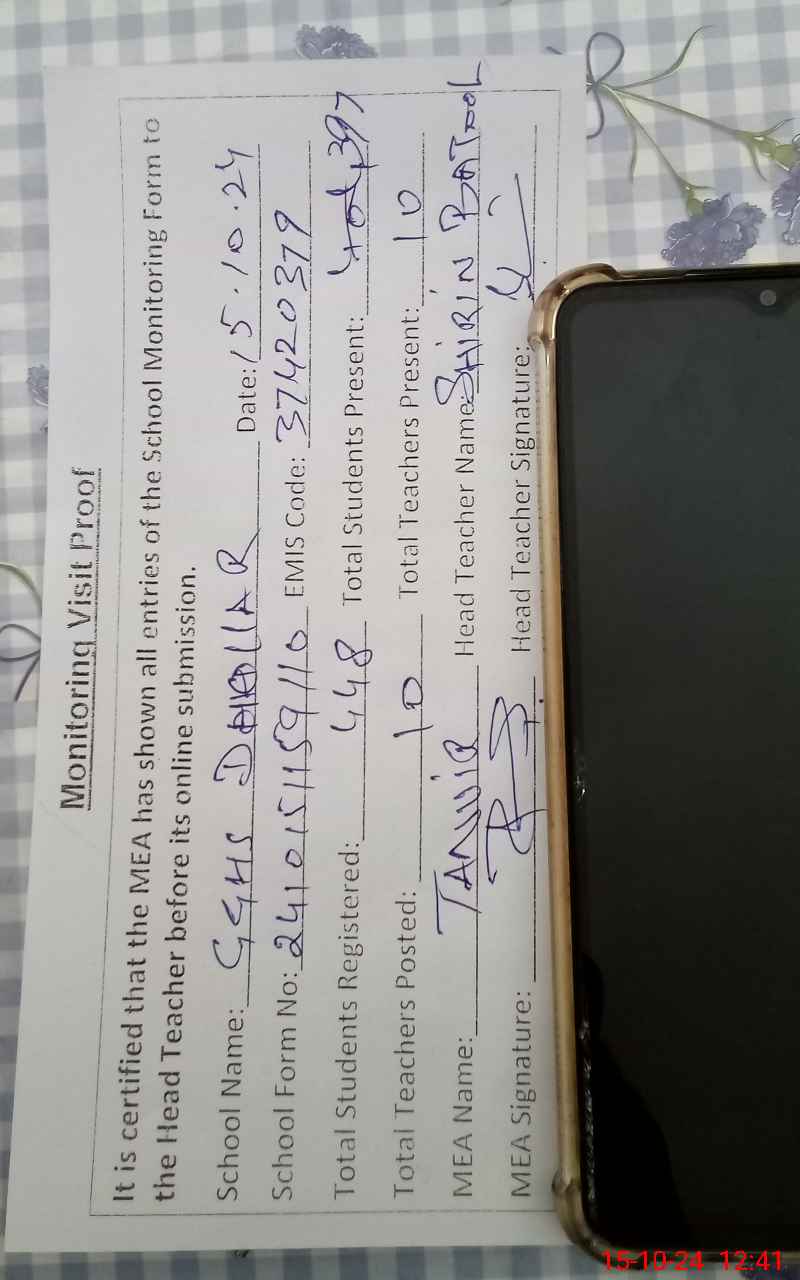 Monitoring Visit Proof
It is certified that the MEA has shown all entries of the School Monitoring Form to
the Head Teacher before its online submission.
School Name: GGHS Date: 15.10.24
School Form No: 2410151159110 EMIS Code: 37420379
Total Students Registered: 448 Total Students Present: 397
Total Teachers Posted: 10 Total Teachers Present: 10
MEA Name: TANVIR Head Teacher Name: SHIRIN BATOOL
MEA Signature: Head Teacher Signature:
15-10-24 12:41